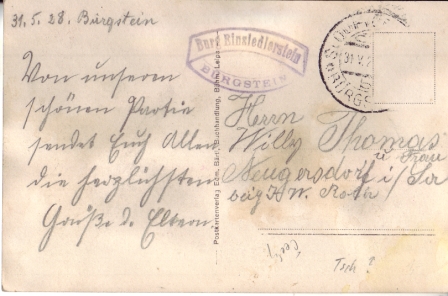 31.5.28. Bürgstein
Von unserem
schönen Partie
sendet Euch Allen
die herzlichsten
Grüße d. Eltern
Burg Einsiedlerstein
BÜRGSTEIN
Postkartenverlag Edm. Bartl, Buchhandlung,
Herrn
Willy Thomas
u Frau
Neugersdorf i/Sa
bei H. W. Roth
Tsch?